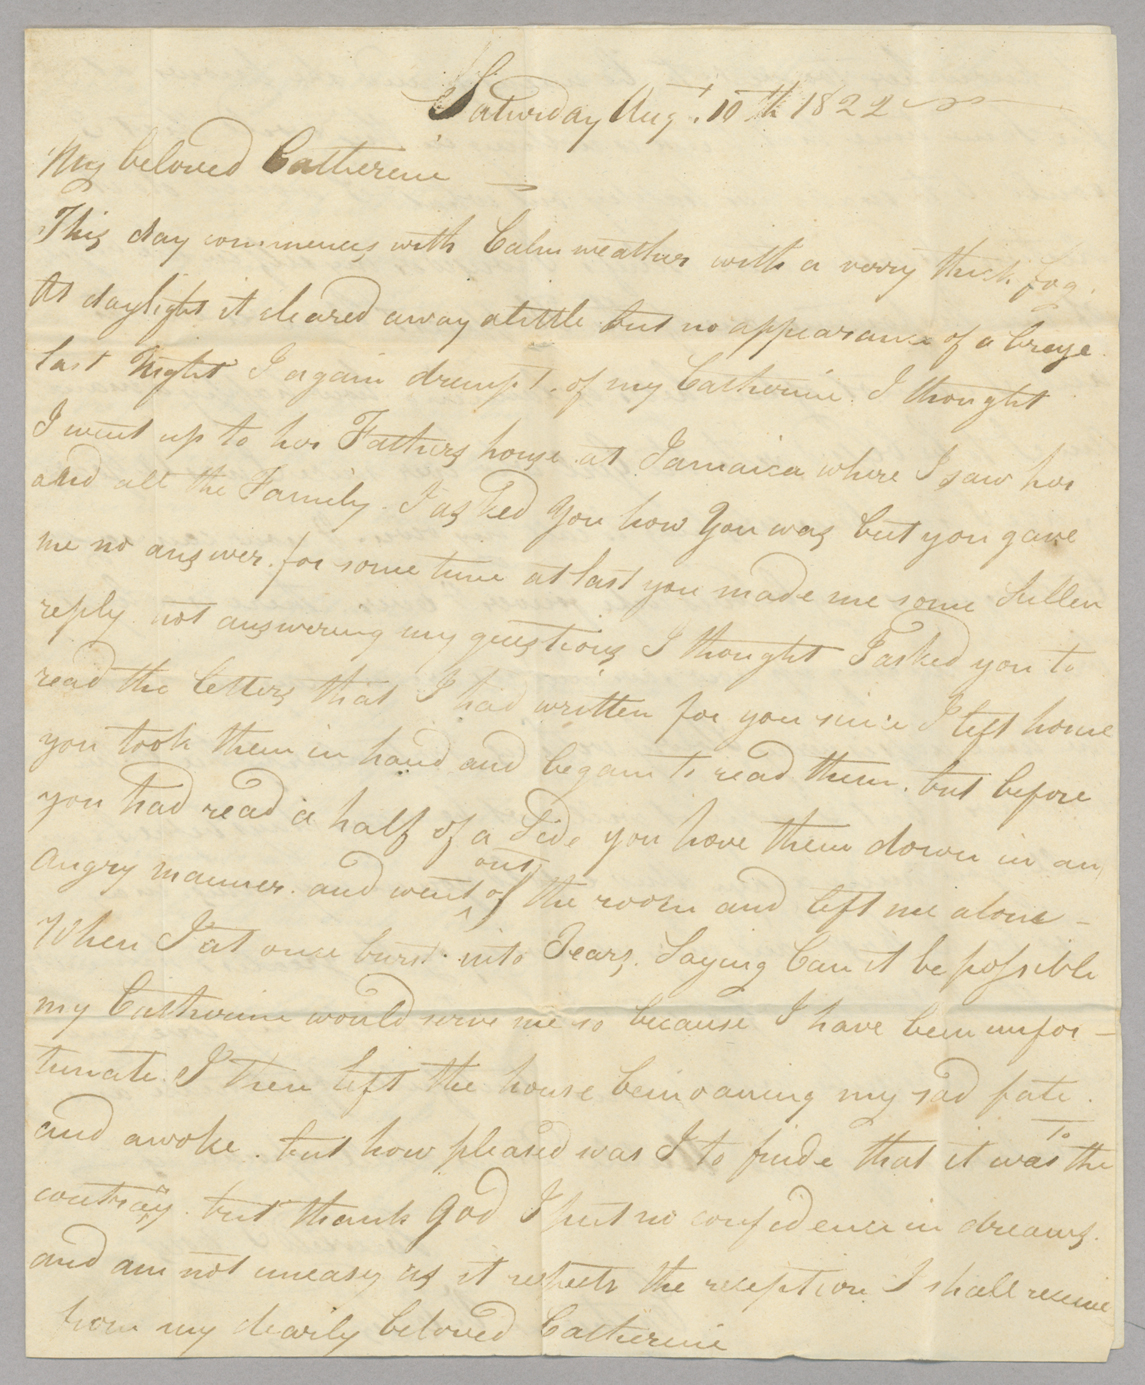 Saturday Augt. 10th 1822
My beloved Catherine
This day commences with Calm weather with a verry thick fog.
At daylight it cleared away alittle but no appearance of a breze.
last Night I again drempt of my Catherine. I thought
I went up to her Fathers house at Jamaica where I saw her
and all the Family. I asked You how You was but you gave
me no answer. for some time at last you made me some Sullen
reply not answering my questions I thought I asked you to
read the letters that I had written for you since I left home
you took them in hand and began to read them. but before
you had read a half of a Side you hove them down in an
angry manner. and went out of the room and left me alone -
When I at once burst into Tears. Saying Can it be possible
my Catherine would serve me so because I have been unfor-
tunate. I then left the house bemoaning my sad fate.
and awoke. but how pleased was I to finde that it was To the
contrary. but thank God I put no confidence in dreams.
and am not uneasy as it respects the reception I shall receive
from my dearly beloved Catherine